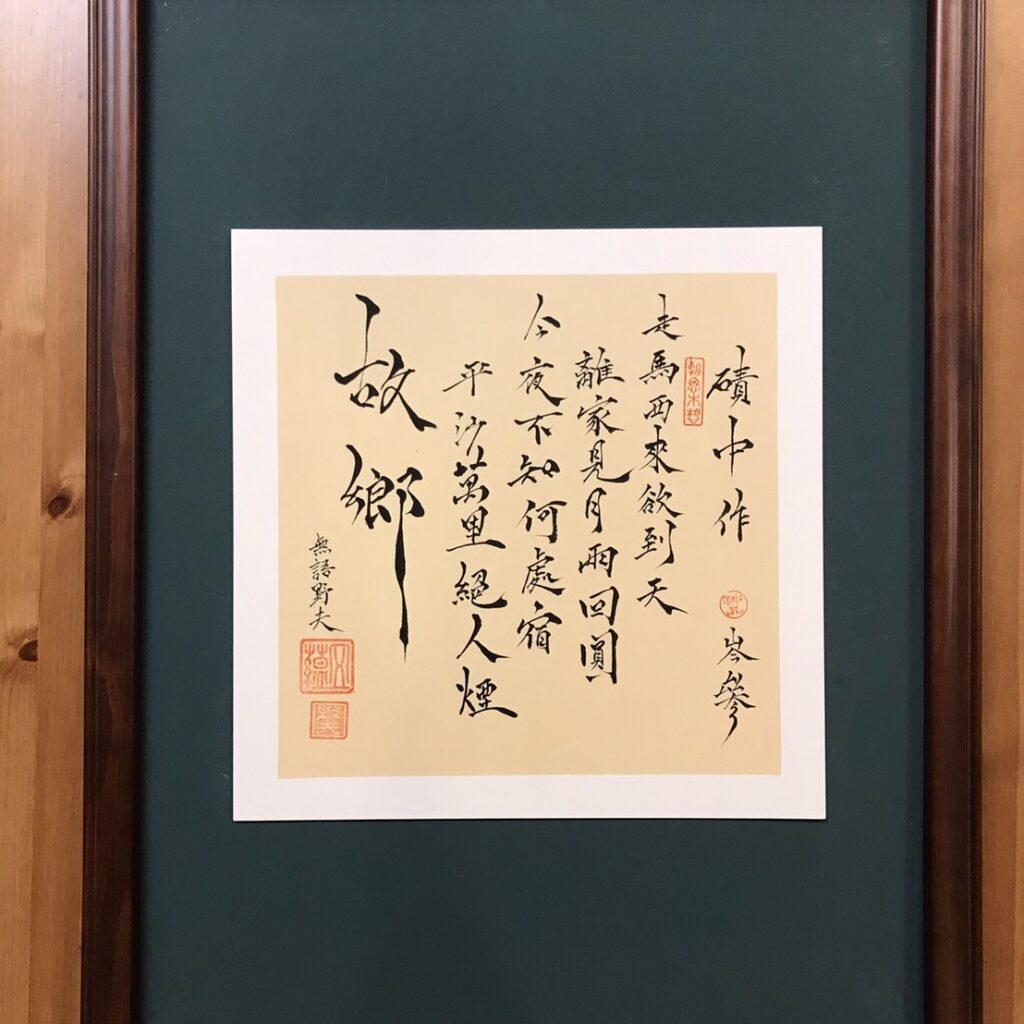 磧中作
岑參
走馬西來欲到天
離家見月兩回圓
今夜不知何處宿
平沙萬里絕人煙
故鄉
無語野夫